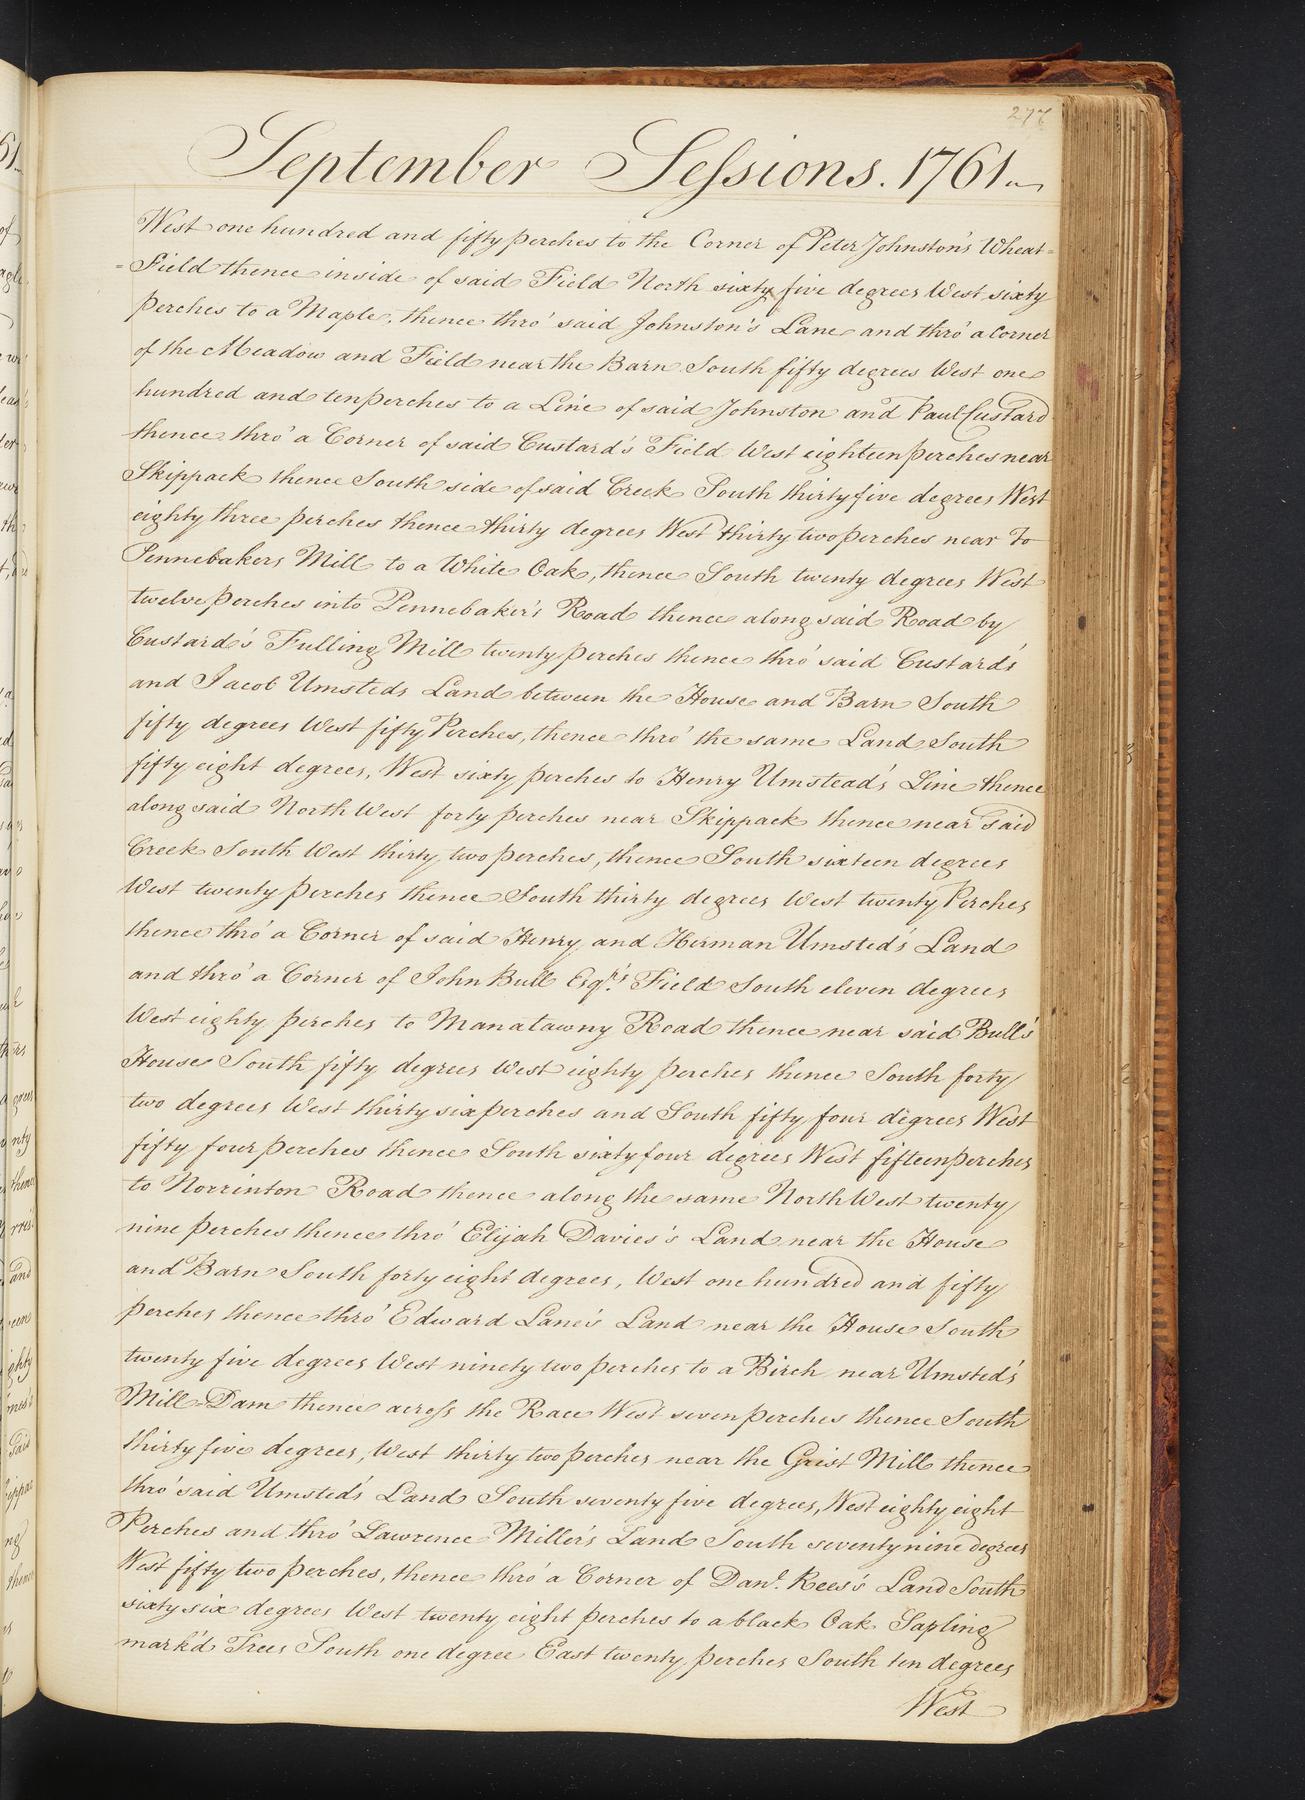 277
September Sessions. 1761
West one hundred and fifty perches to the Corner of Peter Johnston's Wheat=
=Field thence inside of said Field North sixty five degrees West sixty
perches to a Maple, thence thro' said Johnston's Lane and thro' a Corner
of the Meadow and Field near the Barn South fifty degrees West one
hundred and ten perches to a Line of said Johnston and Paul Custard
thence thro' a Corner of said Custard's Field West eighteen perches near
Skippack thence South side of said Creek South thirty five degrees West
eighty three perches thence thirty degrees West thirty two perches near to
Pennebakers Mill to a White Oak, thence South twenty degrees West
twelve perches into Pennebaker's Road thence along said Road by
Custard's Fulling Mill twenty perches thence thro' said Custard's
and Jacob Umsteds Land between the House and Barn South
fifty degrees West fifty Perches, thence thro' the same Land South
fifty eight degrees, West sixty perches to Henry Umstead's Line thence
along said North West forty perches near Skippack thence near said
Creek South West thirty two perches, thence South sixteen degrees
West twenty perches thence South thirty degrees West twenty Perches
thence thro' a Corner of said Henry and Herman Umsted's Land
and thro' a Corner of John Bull Esqr's Field South eleven degrees
West eighty perches to Manatawny Road thence near said Bull's
House South fifty degrees West eighty perches thence South forty
two degrees West thirty six perches and South fifty four degrees West
fifty four perches thence South sixty four degrees West fifteen perches
to Norrinton Road thence along the same North West twenty
nine perches thence thro' Elijah Davies's Land near the House
and Barn South forty eight degrees, West one hundred and fifty
perches thence thro' Edward Lane's Land near the House South
twenty five degrees West ninety two perches to a Birch near Umsted's
Mill=Dam thence across the Race West seven perches thence South
thirty five degrees, West thirty two perches near the Grist Mill thence
thro' said Umsted's Land South seventy five degrees, West eighty eight
Perches and thro' Lawrence Miller's Land South seventy nine degrees
West fifty two perches, thence thro' a Corner of Danl. Rees's Land South
sixty six degrees West twenty eight perches to a black Oak Sapling
mark'd Trees South one degree East twenty perches South ten degrees
West